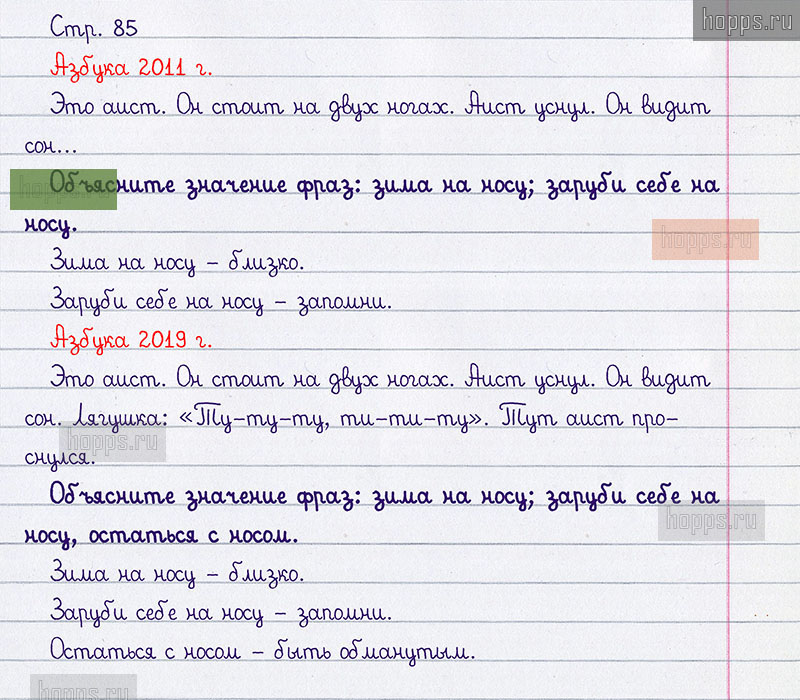 hopps.ru
Стр. 85
Азбука 2011 г.
Это аист. Он стоит на двух ногах. Аист уснул. Он видит
сон...
Объясните значение фраз: зима на носу; заруби себе на
hopps.ru
носу.
hopps.ru
Зима на носу – близко.
Заруби себе на носу – запомни.
Азбука 2019 г.
Это аист. Он стоит на двух ногах. Аист уснул. Он видит
сон. Лягушка: «Ту-ту-ту, ти-ти-ту». Тут аист про-
hopps.ru
снулся.
Объясните значение фраз: зима на носу; заруби себе на
hopps.ru
носу, остаться с носом.
Зима на носу – близко.
Заруби себе на носу – запомни.
Остаться с носом – быть обманутым.
hopps.ru